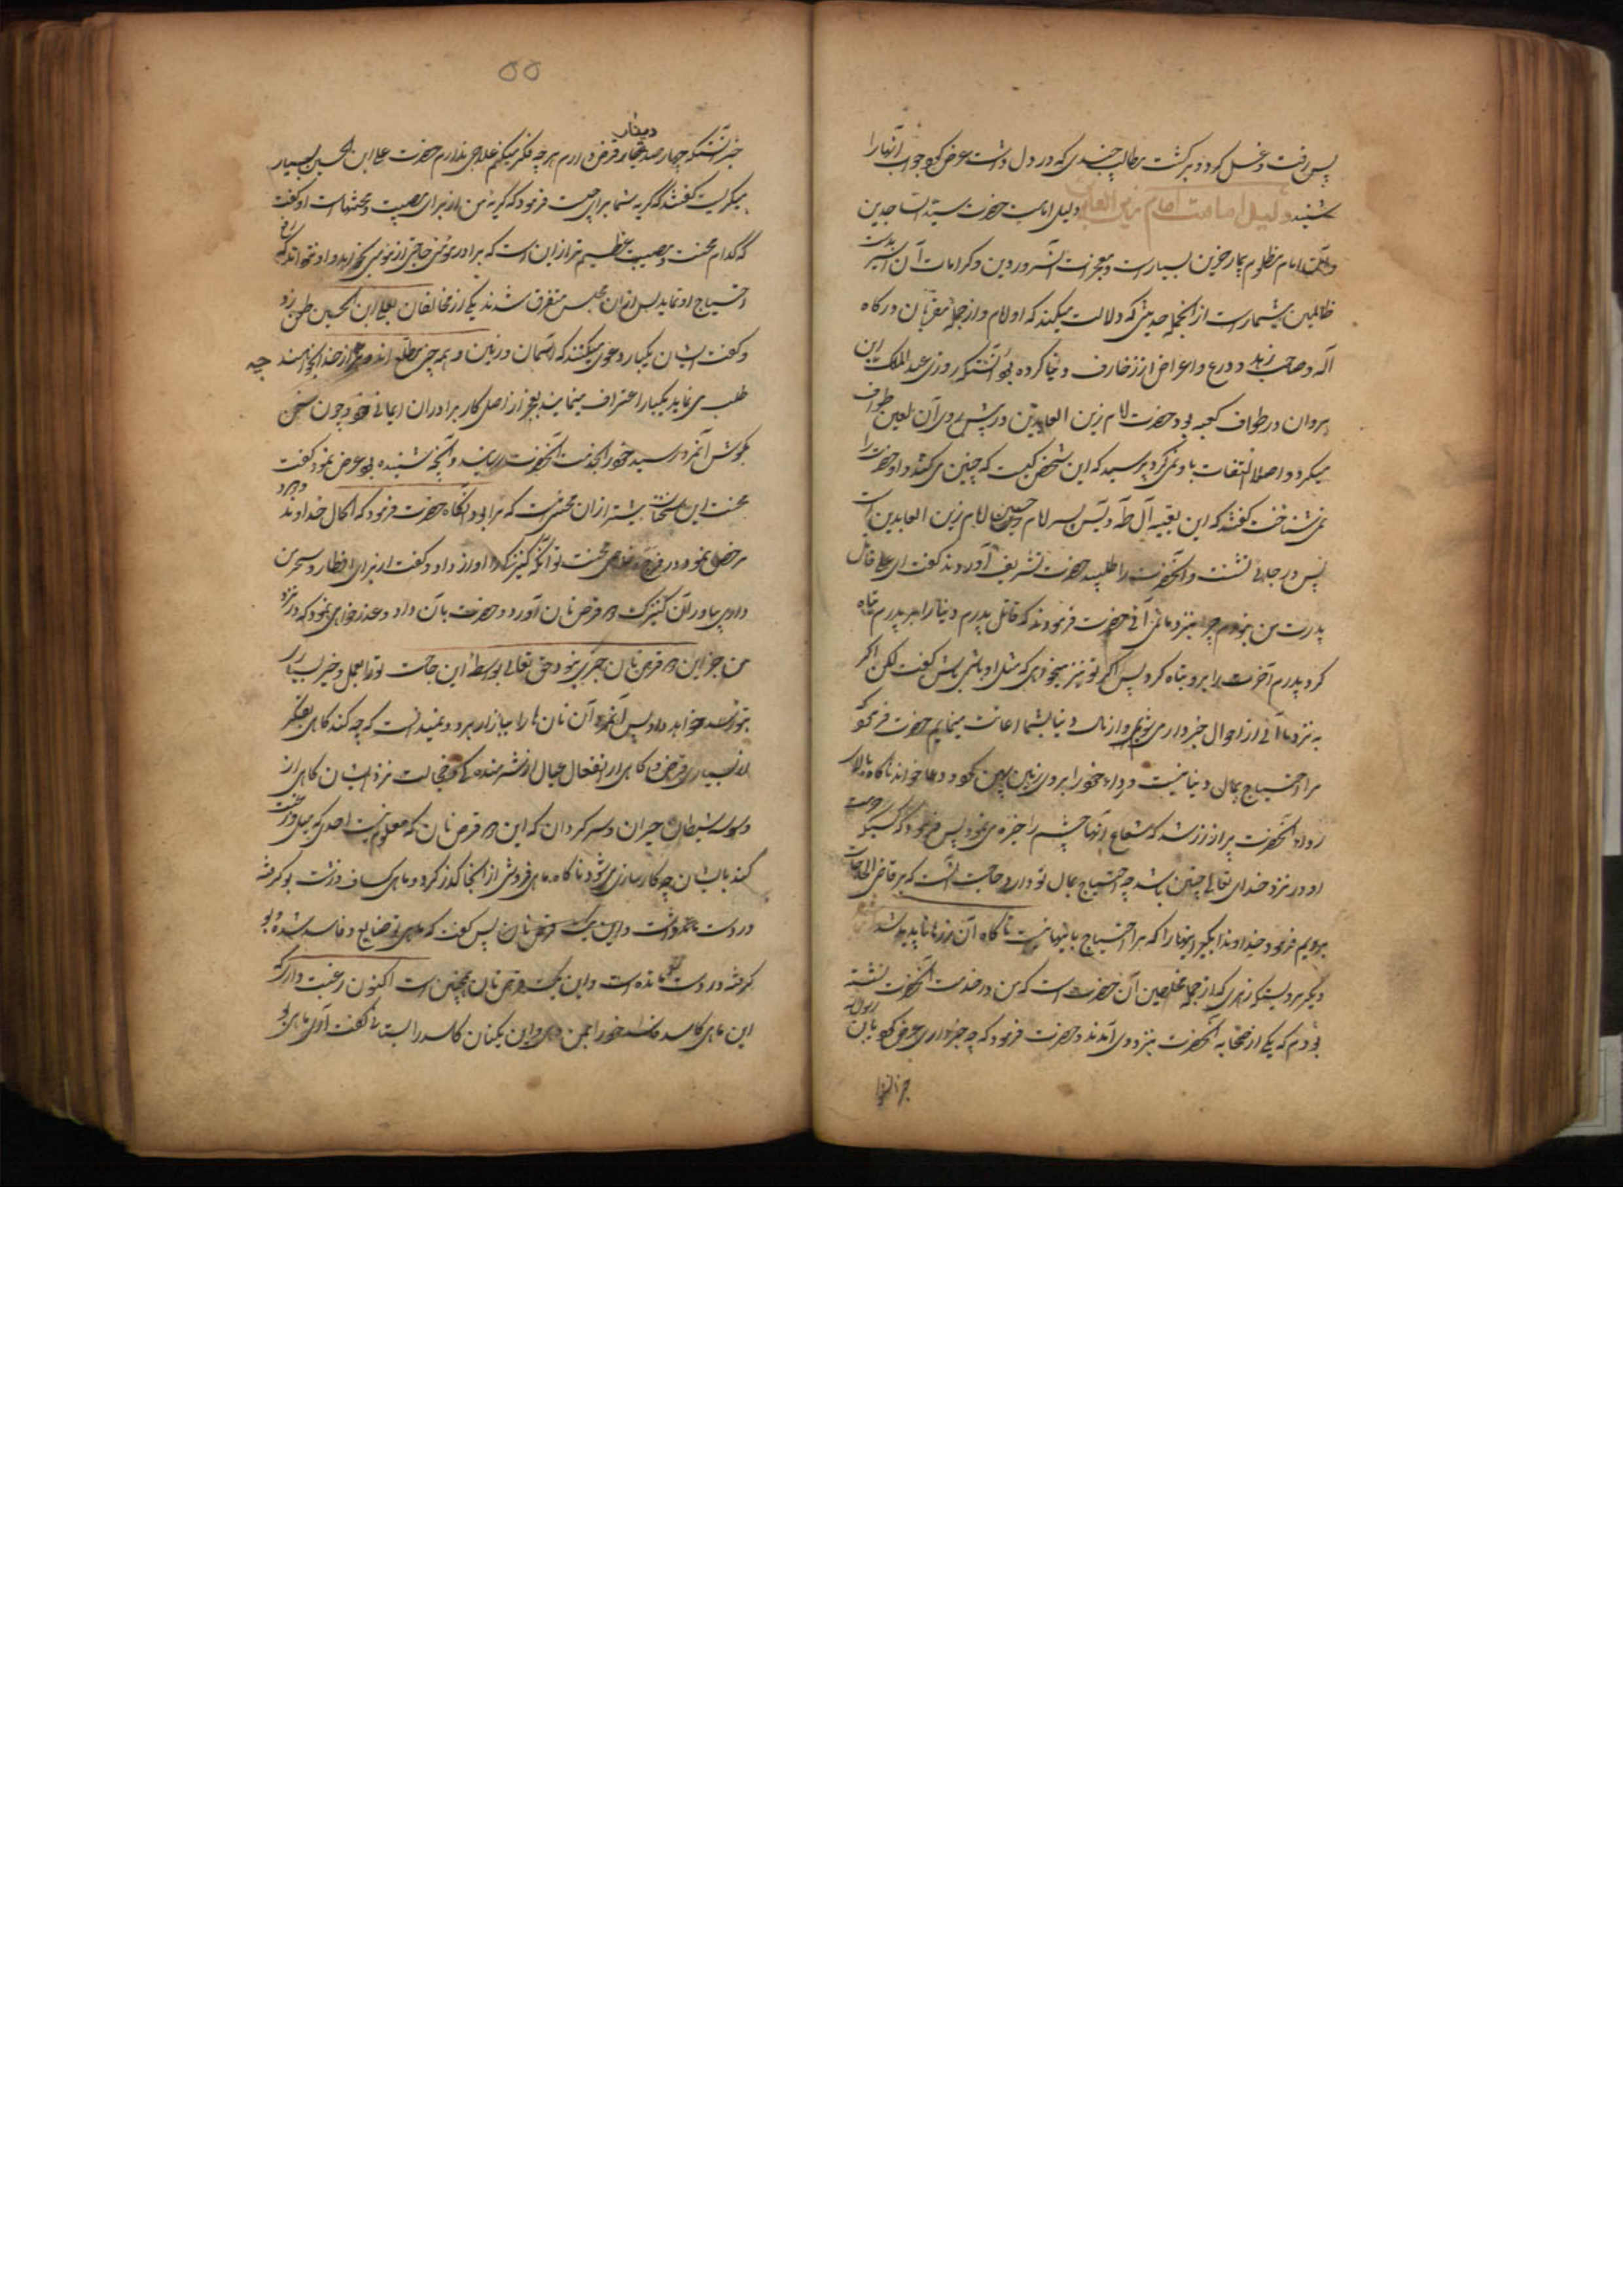 پس رفت و غسل کرد و برگشت مطالب چندی که در دل داشت عرض کرد و جواب آنها را
شنید دلیل امامت امام زین العابدین دلیل امامت حضرت سید الساجدین
و امام مظلوم بیمار حزین بسیار است و معجزات آن سرور دین و کرامات آن اسیر بدست
ظالمین بیشمار است از آنجمله حدیثی که دلالت میکند که او امام و از جمله مقربان درگاه
آله و صاحب زهد و ورع و اعراض از زخارف دنیا کرده بود آنستکه روزی عبد الملک ابن
مروان در طواف کعبه بود و حضرت امام زین العابدین در پیش روی آن لعین طواف
میکرد و اصلا التفات باو نمی کرد پرسید که این شخص کیست که چنین می کند و او حضرت را
نمی شناخت گفتند که این بقیه آل طه و یس پسر امام حسین امام زین العابدین است
پس در جائی نشست و آنحضرت را طلبید حضرت تشریف آوردند گفت ای علی قاتل
پدرت من نبودم چرا بنزد ما نمی آئی حضرت فرمودند که قاتل پدرم دنیا را بر پدرم تباه
کرد پدرم آخرت را بر او تباه کرد پس اگر تو نیز میخواهی که مثل او باشی باش گفت لکن اگر
به نزد ما آئی از احوال خبردار می شویم و از مال دنیا بشما اعانت مینمایم حضرت فرمود
مرا احتیاج بمال دنیا نیست و رداء خود را بروی زمین پهن کرد و دعا خواند ناگاه
رداء آنحضرت پر از زر شد که شعاع آنها چشم را خیره می نمود پس فرمود که کسیکه حرمت
او در نزد خدای تعالی چنین باشد چه احتیاج بمال تو دارد حاجت آنست که بر قاضی الحاجات
بریم فرمود خداوندا بگیر اینها را که مرا احتیاج باینها نیست ناگاه آن زرها ناپدید شد
دیگر مرویستکه زهری که از جمله مخلصین آن حضرت است که من در خدمت آنحضرت نشسته
بودم که یکی از صحابه آنحضرت بنزد وی آمدند و حضرت فرمود که چه خبر داری عرض کرد یابن رسول الله
خبر آنستکه چهار صد دینار قرض دارم هر چه فکر میکنم علاجی ندارم حضرت علی ابن الحسین بسیار
میگریست گفتند که گریه شما برای چیست فرمود که گریه من از برای مصیبت و محنتهاست او گفت
که کدام محنت و مصیبت عظیم تر از این است که برادر مؤمن حاجتی از مؤمنی بخواهد و او نتواند که رفع
احتیاج او نماید پس از آن مجلس متفرق شدند یکی از مخالفان بعلی ابن الحسین طعن زد
و گفت ایشان یکبار دعوی میکنند که آسمان و زمین و همه چیز مطیع اند و هر چه از خدا بخواهند
طلب می نماید یکبار اعتراف مینمایند بعجز از اصل کار برادران ایمانی خود چون سخن
بگوش آنمرد رسید خود را بخدمت آنحضرت رسانید و آنچه شنیده بود عرض نمود گفت
محنت این سخنان بیشتر از آن محنتست که مرا بود آنگاه حضرت فرمود که الحال خداوند
مرخص نمود در فرج محنت تو آنگه کنیزک را آواز داد و گفت از برای افطار و سحر من
داری بیاور آن کنیزک دو قرص نان آورد و حضرت بآن داد و عذر خواهی نمود که در نزد
من جز این دو قرص نان چیزی نبود حق تعالی بواسطه این حاجت تو را بعمل و خیر بسیار
بتو خواهد داد پس آنمرد آن نان ها را ببازار برد و نمیدانست که چه کند گاهی بفکر
از بسیاری قرض و گاهی از انفعال عیال او شرمنده که خجالت نزد ایشان گاهی از
وسوسه شیطان حیران و سرگردان که این دو قرص نان که معلوم نیست احدی که رغبت
کند بایشان چه کارسازی می شود ناگاه ماهی فروشی از آنجا گذر کرد و ماهی کساف زشت بو گرفته
در دست داشت و این یک قرص نان پس گفت که ماهی تو ضایع و فاسد شده و بو
گرفته در دست تو مانده است و این یک قرص نان همچنین است اکنون رغبت داری که
این ماهی کاسد فاسد خود را بمن دهی و این یکنان کاسد را بستانی گفت آری ماهی بو